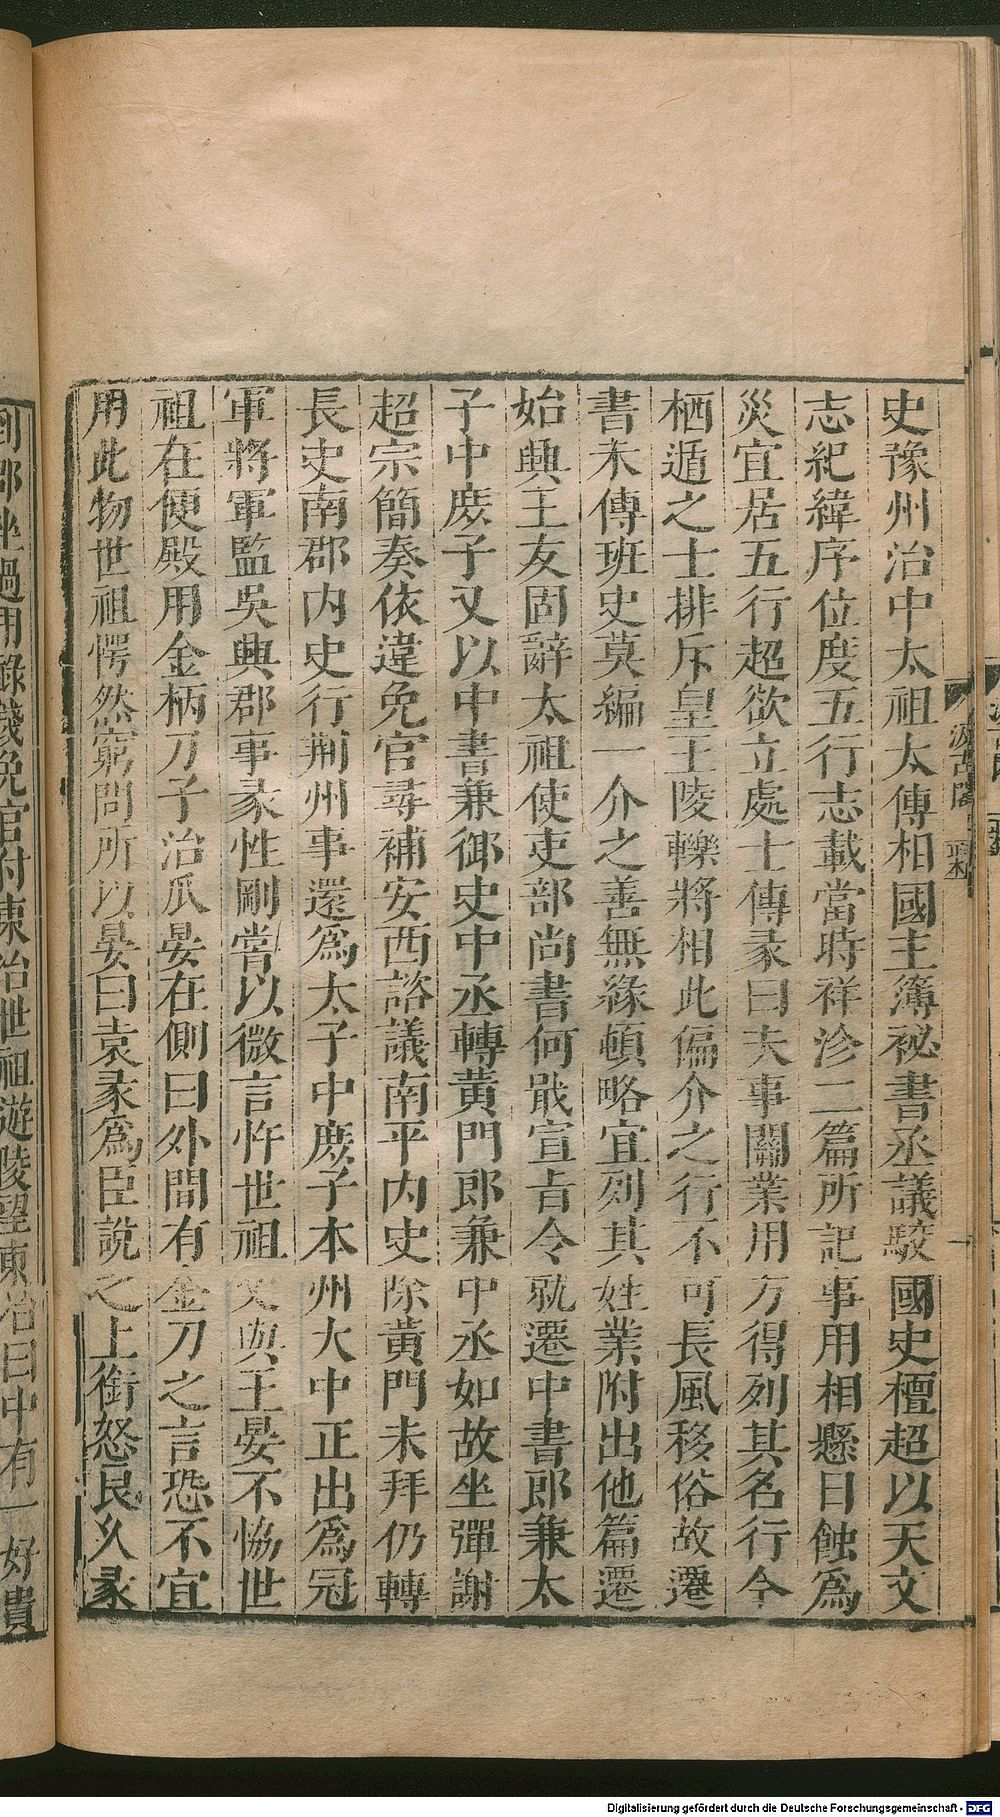 史豫州治中太祖太傅相國主簿祕書丞議駮國史檀超以天文
志紀緯序位度五行志載當時祥沴二篇所記事用相懸日蝕爲
災宜居五行超欲立處士傳彖曰夫事關業用方得列其名行今
栖遁之士排斥皇王陵轢將相此偏介之行不可長風移俗故遷
書未傳班史莫編一介之善無緣頓略宜列其姓業附出他篇遷
始興王友固辭太祖使吏部尚書何戢宣旨令就遷中書郎兼太
子中庶子又以中書兼御史中丞轉黃門郎兼中丞如故坐彈謝
超宗簡奏依違免官尋補安西諮議南平內史除黃門未拜仍轉
長史南郡內史行荆州事還爲太子中庶子本州大中正出爲冠
軍將軍監吳興郡事彖性剛嘗以微言忤世祖又與王晏不恊世
祖在便殿用金柄刀子治瓜晏在側曰外間有金刀之言恐不宜
用此物世祖愕然窮問所以晏曰袁彖爲臣說之上銜怒良久彖
到郡坐過用祿錢免官付東冶世祖遊陵望東冶曰中有一好貴
汲古閣
Digitalisierung gefördert durch die Deutsche Forschungsgemeinschaft - DFG